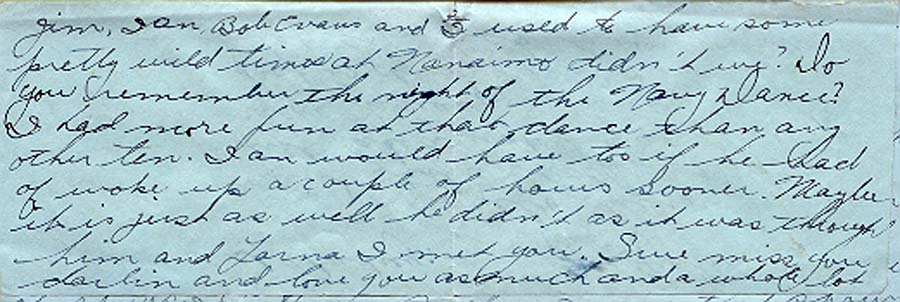 Jim, Ian, Bob Evans and I used to have some
pretty wild times at Nanaimo didn't we? Do
you remember the night of the Navy Dance?
I had more fun at that dance than any
other ten. Ian would have too if he had
of woke up a couple of hours sooner. Maybe
it is just as well he didn't as it was through
him and Lorna I met you. Sure miss you
darlin and love you as much and a whole lot